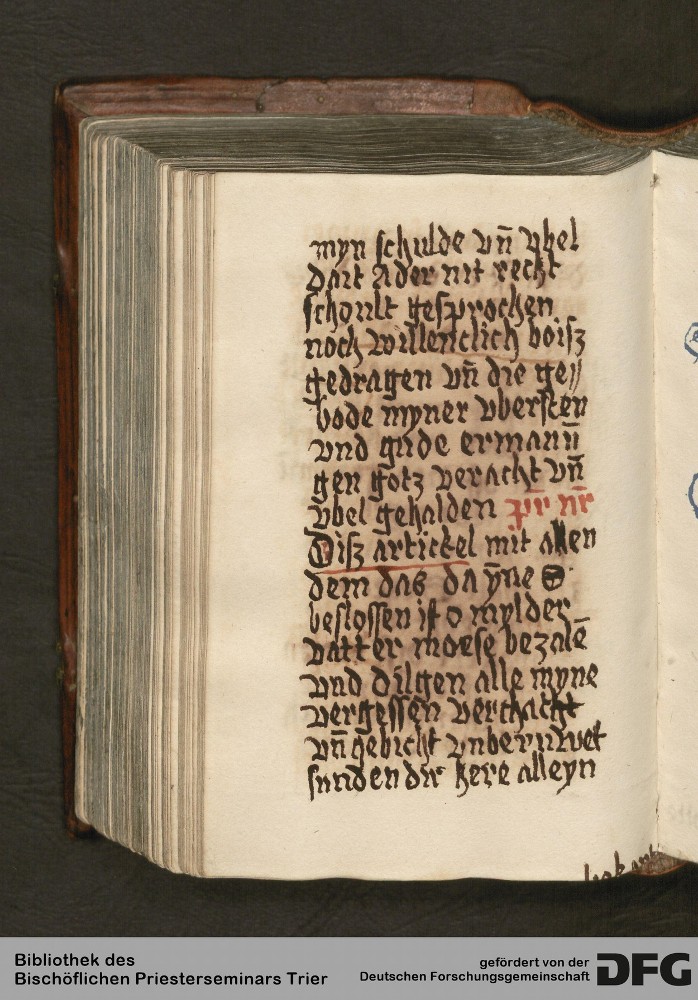 myn schulde vn̄ vbel
dait ader nit recht
schoult gesprochen
noch willenclich boisz
gedragen vn̄ die ge//
bode myner vbersten
vnd gude ermanū
gen gotz veracht vn̄
vbel gehalden pr̄ nr̄
Disz artickel mit allen
dem das da ȳne
beslossen ist o mylder
vatter moese bezalē
vnd dilgen alle myne
vergessen verchacht
vn̄ gebicht vnberuwet
sunden dir here alleyn
Bibliothek des
Bischöflichen Priesterseminars Trier
gefördert von der
Deutschen Forschungsgemeinschaft
DFG